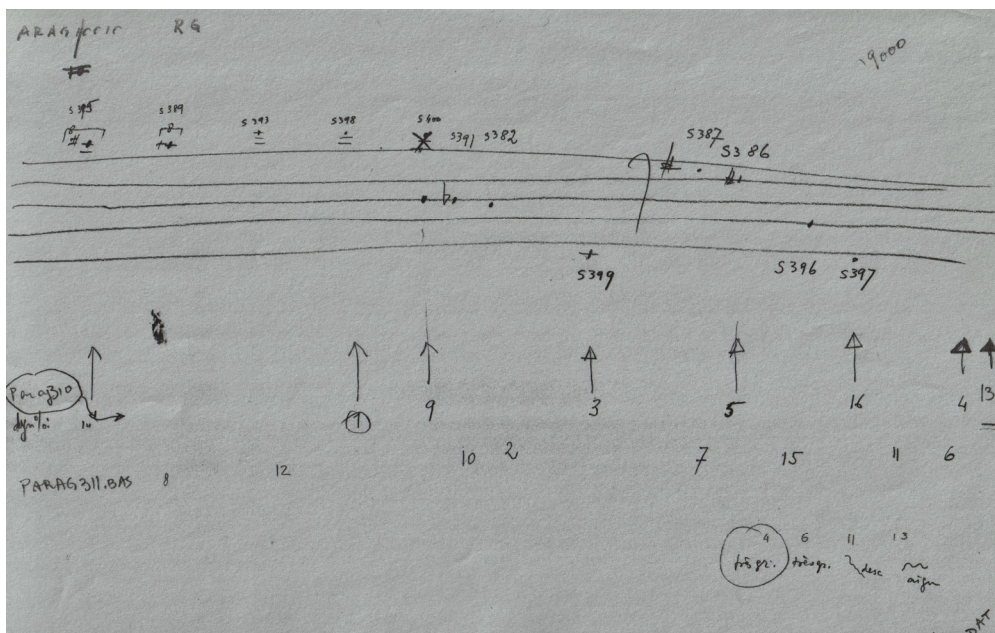 RG
19000
S395 S389 S393 S398 S400 S391 S382 S387 S386
S399 S396 S397
Parag310
9 3 5 16 4 13
1
10 2 7 15 11 6
PARAG311.BAS 8 12
4 6 11 13
très gr. très gr. desc aigu
DAT